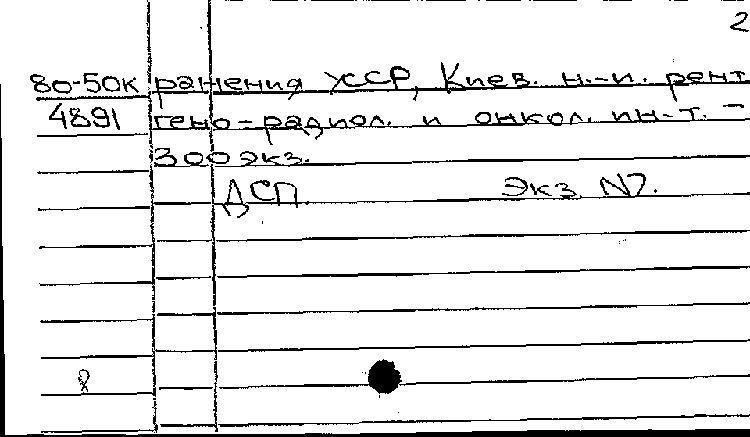 2
80-50к ранения УССР, Киев. н.-и. рент
4891 гено-радиол. и онкол. ин-т. –
300 экз.
ДСП. Экз. N7.
8